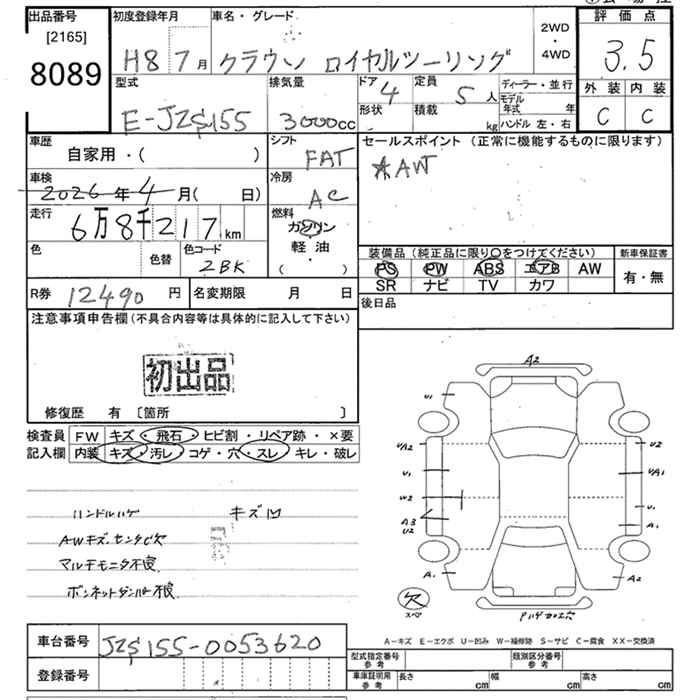 出品番号 初度登録年月 車名・グレード 2WD・4WD 評価点
[2165]
8089 H8 7月 クラウン ロイヤルツーリング 3.5
型式 排気量 ドア 4 定員 5人 ディーラー・並行 外装 内装
E-JZS155 3000cc 形状 積載 kg モデル年式 年 C C
ハンドル 左・右
車歴 シフト セールスポイント (正常に機能するものに限ります)
自家用・( ) FAT ★AW
車検 冷房
2026年4月( 日) AC
走行 燃料
6万8千217km ガソリン
色 色替 色コード 軽油・ 装備品 (純正品に限り○をつけてください) 新車保証書
2BK ( ) PS PW ABS エアB AW 有・無
SR ナビ TV カワ
R券 12490円 名変期限 月 日 後日品
注意事項申告欄 (不具合内容等は具体的に記入して下さい)
初出品
修復歴 有 〔箇所 〕
検査員 FW キズ・飛石・ヒビ割・リペア跡・×要
記入欄 内装 キズ・汚レ・コゲ・穴・スレ・キレ・破レ
ハンドルハゲ キズ凹
AWキズ、センタC欠
マルチモニタ不良
ボンネットダンパー不良
A2
U1
UA2 U2
U1 UA1
W2 U1
A3 U2 A1
A1 A2
欠
スペア
A−キズ E−エクボ U−凹み W−補修跡 S−サビ C−腐食 XX−交換済
車台番号 JZS155-0053620
登録番号
型式指定番号 参考 類別区分番号 参考
車庫証明用 参考 長さ cm 幅 cm 高さ cm